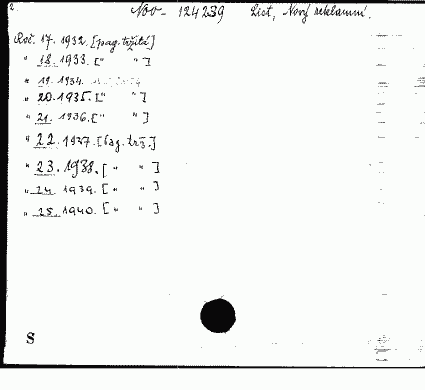 2. Nov- 124239 List, Nový reklamní.
Roč. 17. 1932. [pag. tržitá]
" 18. 1933. [" "]
" 19. 1934.
" 20. 1935. [" "]
" 21. 1936. [" "]
" 22. 1937. [Pag. trž.]
" 23. 1938. [" "]
" 24. 1939. [" "]
" 25. 1940. [" "]
S